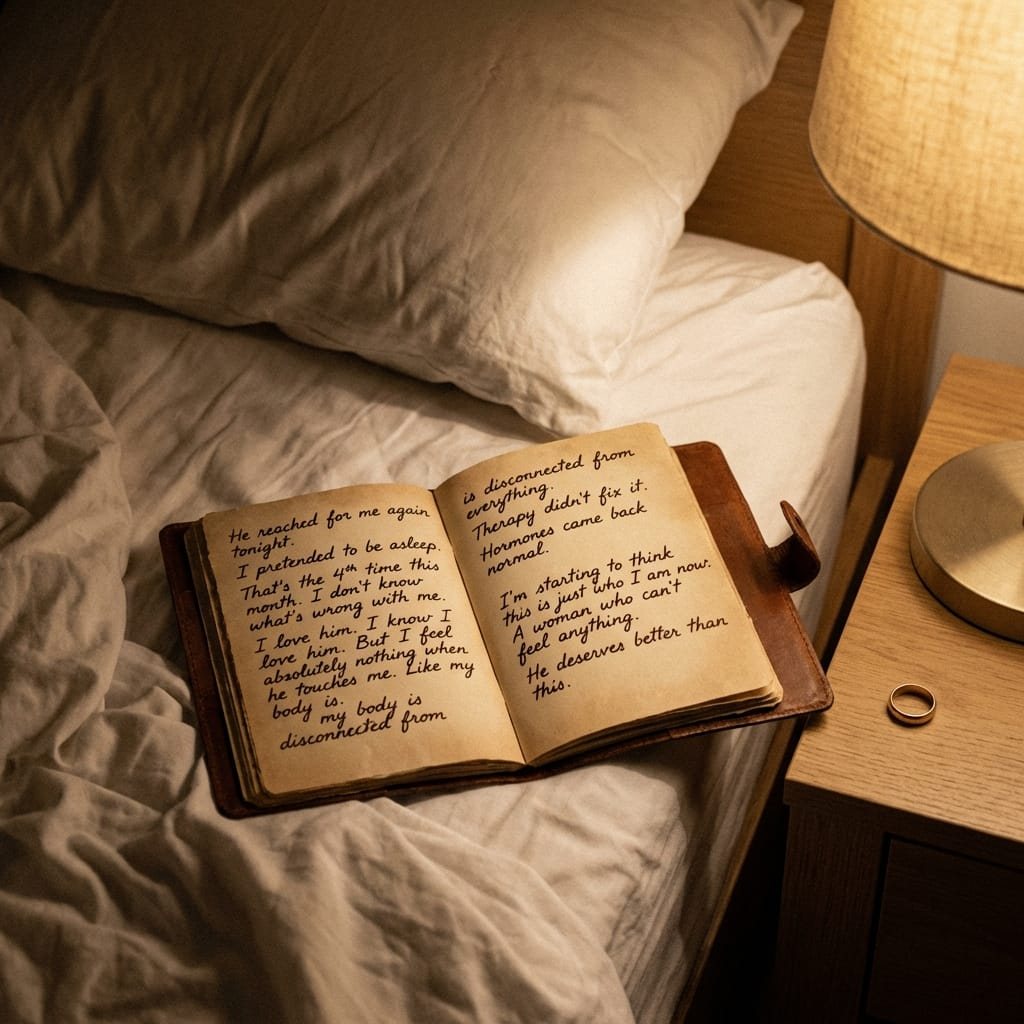 He reached for me again
tonight.
I pretended to be asleep.
That's the 4th time this
month. I don't know
what's wrong with me.
I love him. I know I
love him. But I feel
absolutely nothing when
he touches me. Like my
body is.
my body is
disconnected from
is disconnected from
everything.
Therapy didn't fix it.
Hormones came back
normal.
I'm starting to think
this is just who I am now.
A woman who can't
feel anything.
He deserves better than
this.